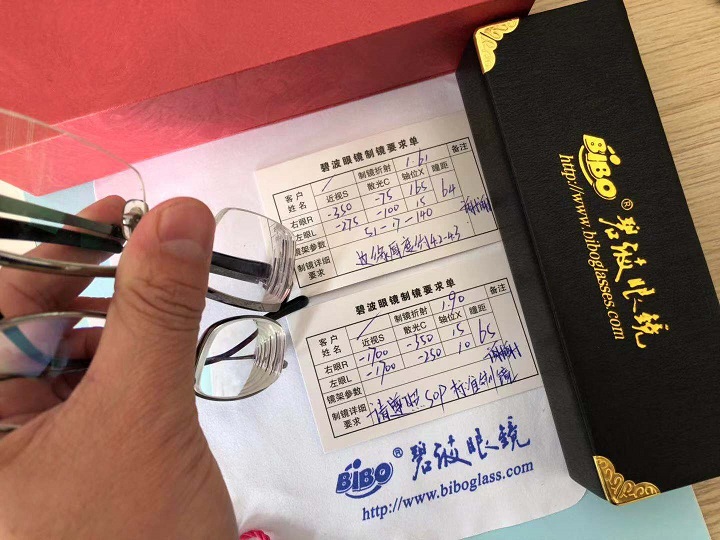 碧波眼镜制镜要求单
客户姓名 / 制镜折射 1.61 备注
近视S 散光C 轴位X 瞳距
右眼R -350 -75 165 64
左眼L -275 -100 15
镜架参数 51-17-140 谢谢
制镜详细要求 边缘厚度约4.2-4.3
碧波眼镜制镜要求单
客户姓名 / 制镜折射 1.90 备注
近视S 散光C 轴位X 瞳距
右眼R -1700 -350 15 65
左眼L -1700 -250 10
镜架参数 谢谢
制镜详细要求 请遵照SOP标准制镜
BiBO® 碧波眼镜
http://www.biboglass.com
BiBO® 碧波眼镜
http://www.biboglasses.com